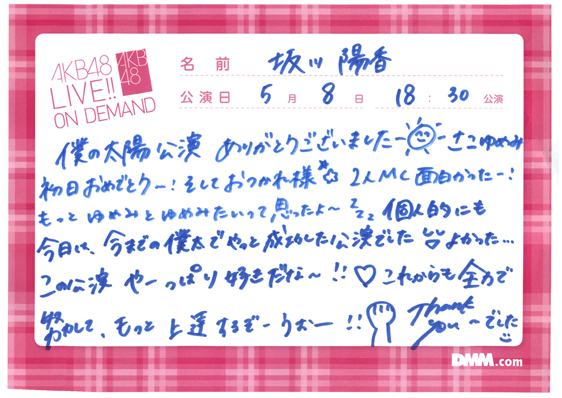 AKB48
LIVE!!
ON DEMAND
AKB
48
名 前 坂川 陽香
公演日 5 月 8 日 18 : 30 公演
僕の太陽公演 ありがとうございましたー さこ ゆめみ
初日おめでとうー! そしておつかれ様☆ 2人MC 面白かったー!
もっと ゆめみとゆめみたいって思ったよ〜 zzz 個人的にも
今日は、今までの僕太でやっと成功した公演でした 皆よかった…
この公演 やーっぱり好きだな〜!!♡ これからも全力で
努力して、もっと上達するぞーうおー!! Thank
you〜でした
DMM.com